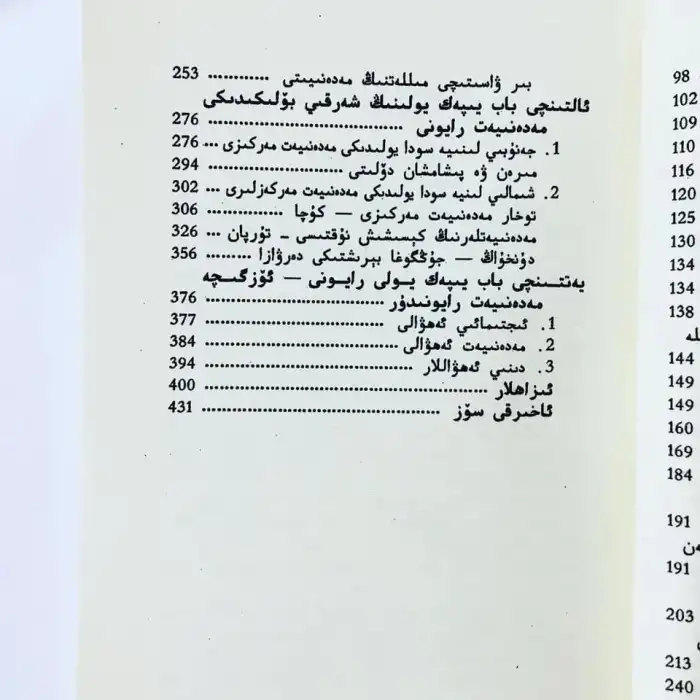 بىر ۋاستىچى مىللەتنىڭ مەدەنىيىتى ............ 253
ئالتىنچى باب يىپەك يولىنىڭ شەرقىي بۆلىكىدىكى
مەدەنىيەت رايونى ................................ 276
1. جەنۇبىي لىنىيە سودا يولىدىكى مەدەنىيەت مەركىزى ... 276
مىرەن ۋە پىشامشان دۆلىتى ........................ 294
2. شىمالىي لىنىيە سودا يولىدىكى مەدەنىيەت مەركەزلىرى ... 302
توخار مەدەنىيەت مەركىزى — كۇچا ............... 306
مەدەنىيەتلەرنىڭ كېسىشىش نۇقتىسى - تۇرپان ... 326
دۇنخۇاڭ — جۇڭگوغا بېرىشتىكى دەرۋازا ......... 356
يەتتىنچى باب يىپەك يولى رايونى — ئۆزگىچە
مەدەنىيەت رايونىدۇر ................................ 376
1. ئىجتىمائىي ئەھۋالى ................................ 377
2. مەدەنىيەت ئەھۋالى ................................ 384
3. دىنىي ئەھۋاللار ................................ 394
ئىزاھلار ................................................ 400
ئاخىرقى سۆز ........................................ 431
98
102
109
110
116
120
125
130
134
134
138
ىلە
144
149
149
160
169
184
191
ەن
191
203
213
240